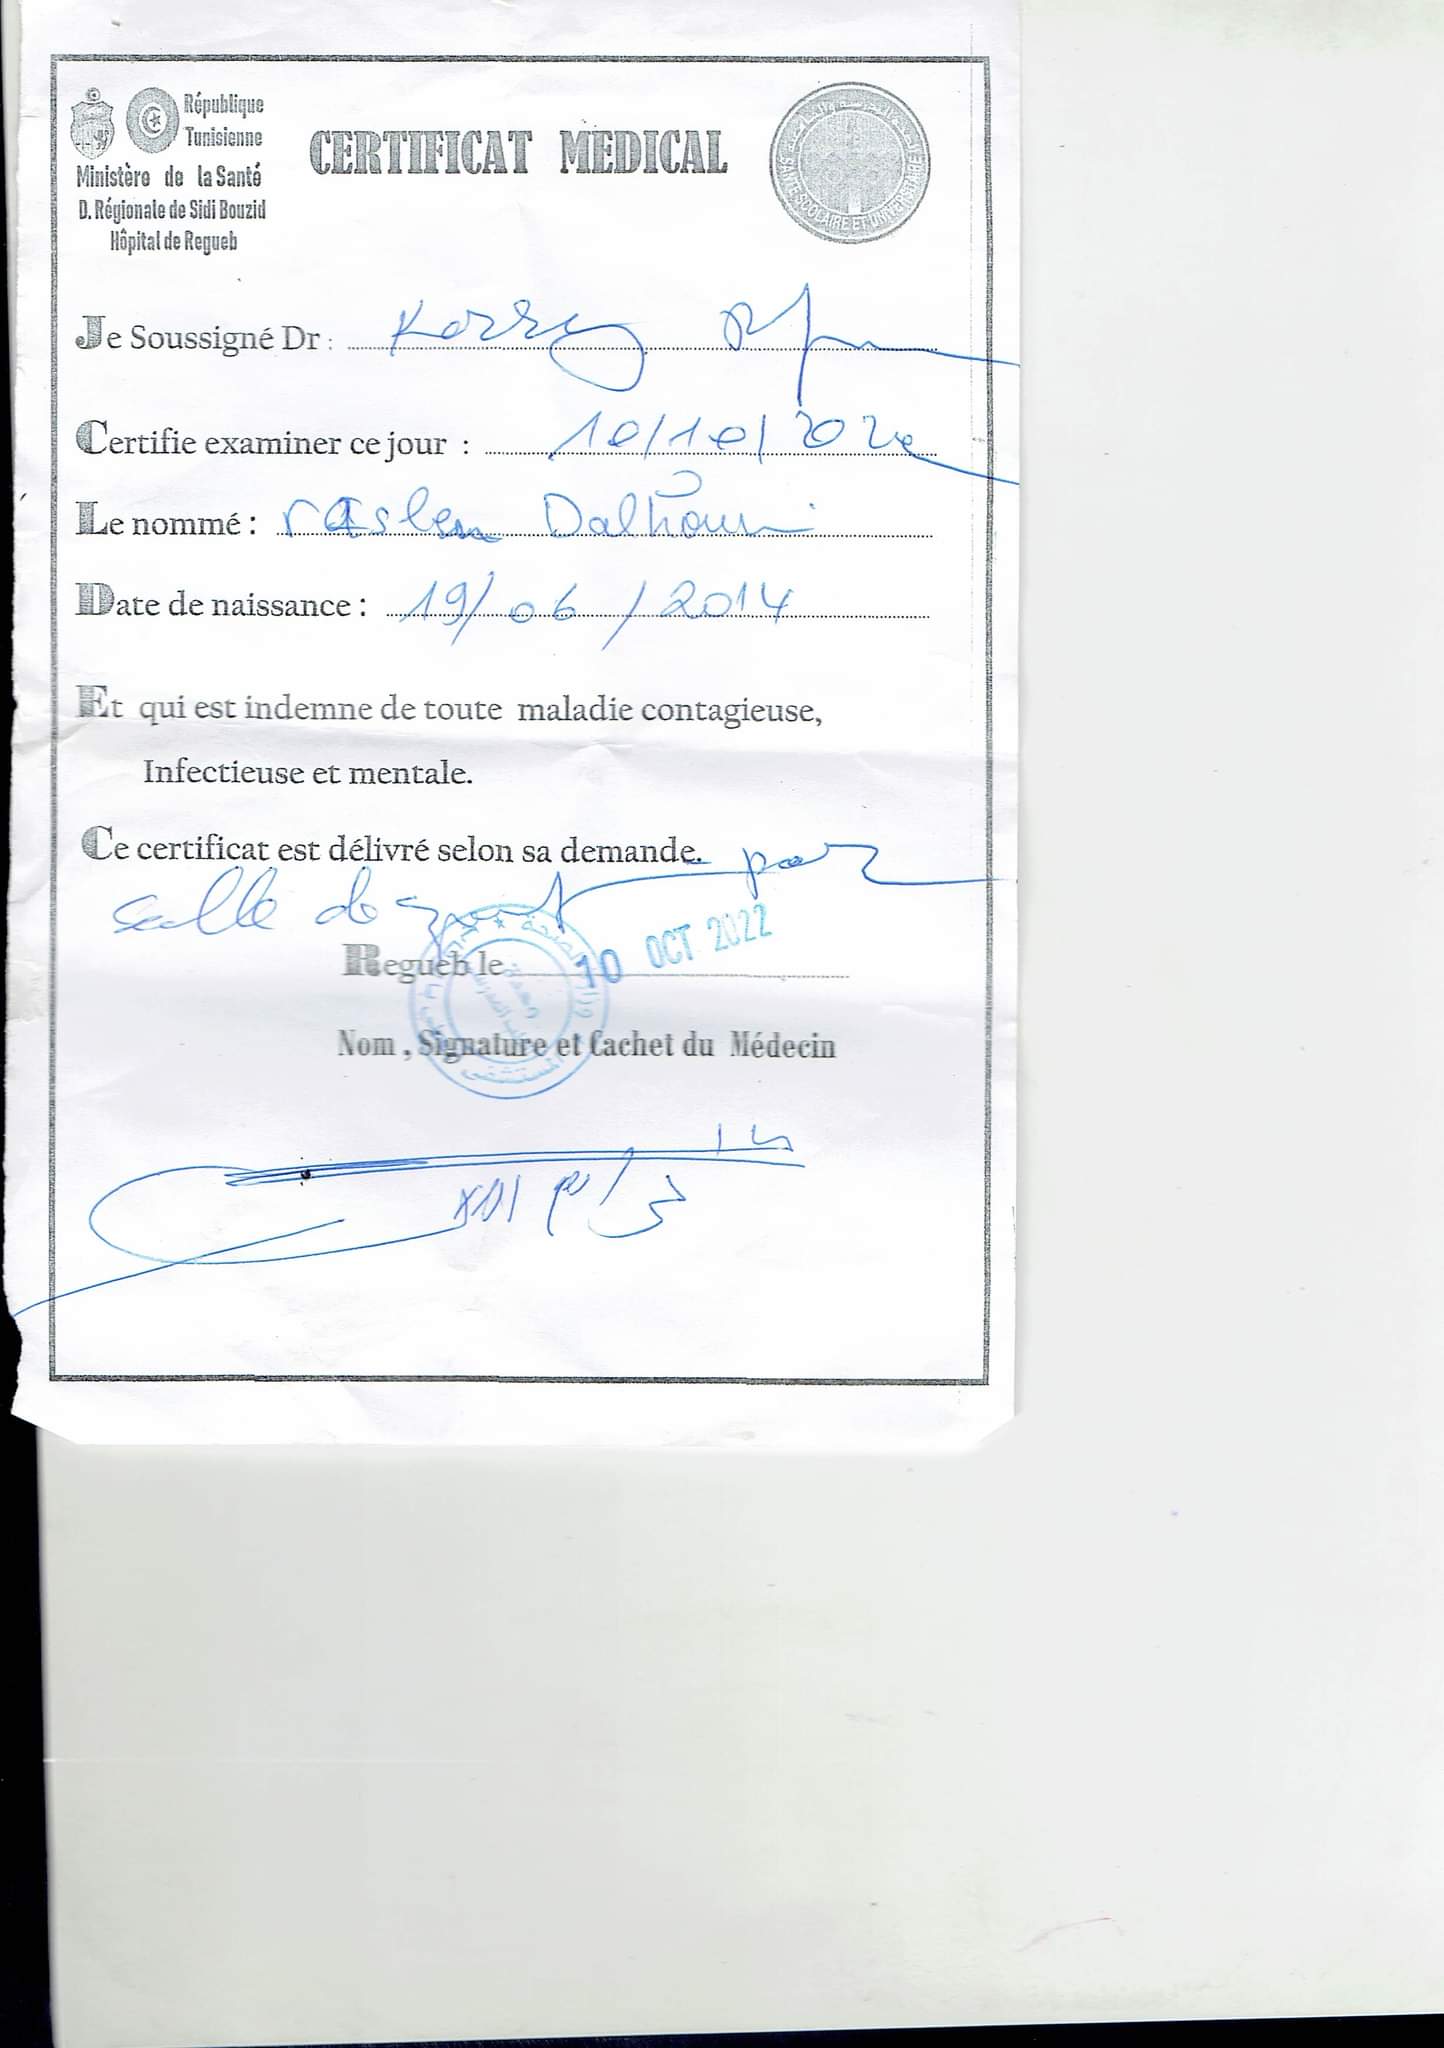 République
Tunisienne
Ministère de la Santé
D. Régionale de Sidi Bouzid
Hôpital de Regueb
CERTIFICAT MEDICAL
SANTE SCOLAIRE ET UNIVERSITAIRE
Je Soussigné Dr :
Certifie examiner ce jour : 10/10/202
Le nommé : raslen Dalhoumi
Date de naissance : 19/06/2014
Et qui est indemne de toute maladie contagieuse,
Infectieuse et mentale.
Ce certificat est délivré selon sa demande. pour
salle de sport
Regueb le 10 OCT 2022
Nom, Signature et Cachet du Médecin